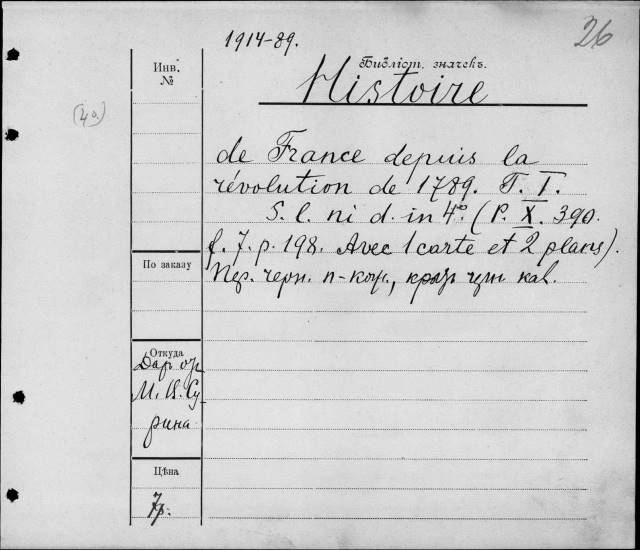 1914-89.
26
Библіот. значекъ.
Histoire
Инв.
№
(40)
de France depuis la
révolution de 1789. T. I.
S. l. ni d. in 4º. (P. X. 390.
f. 7. p. 198. Avec 1 carte et 2 plans).
Пер. черн. п-кож.,
По заказу
Откуда
Даръ
М. Су
рина
Цѣна
7р.